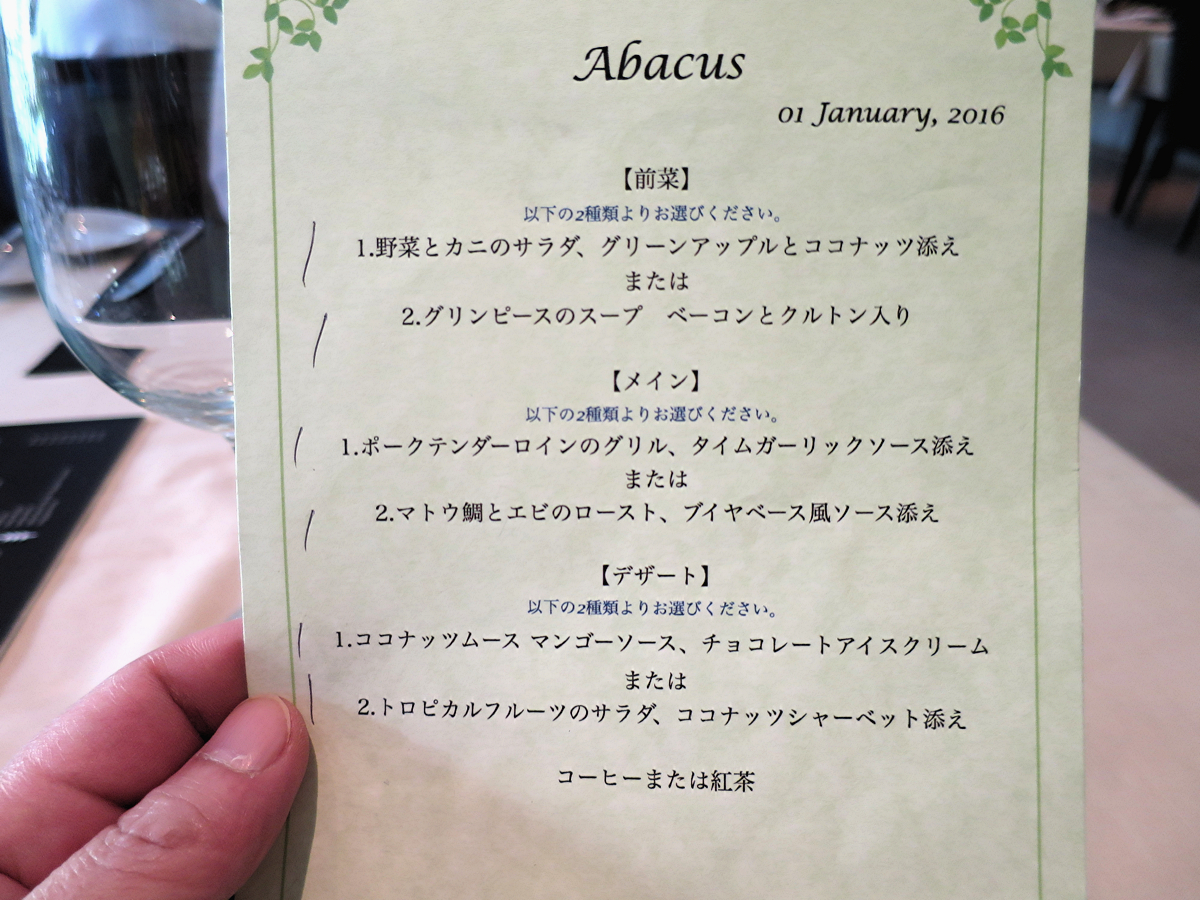 Abacus
01 January, 2016
【前菜】
以下の2種類よりお選びください。
1.野菜とカニのサラダ、グリーンアップルとココナッツ添え
または
2.グリンピースのスープ　ベーコンとクルトン入り
【メイン】
以下の2種類よりお選びください。
1.ポークテンダーロインのグリル、タイムガーリックソース添え
または
2.マトウ鯛とエビのロースト、ブイヤベース風ソース添え
【デザート】
以下の2種類よりお選びください。
1.ココナッツムース マンゴーソース、チョコレートアイスクリーム
または
2.トロピカルフルーツのサラダ、ココナッツシャーベット添え
コーヒーまたは紅茶